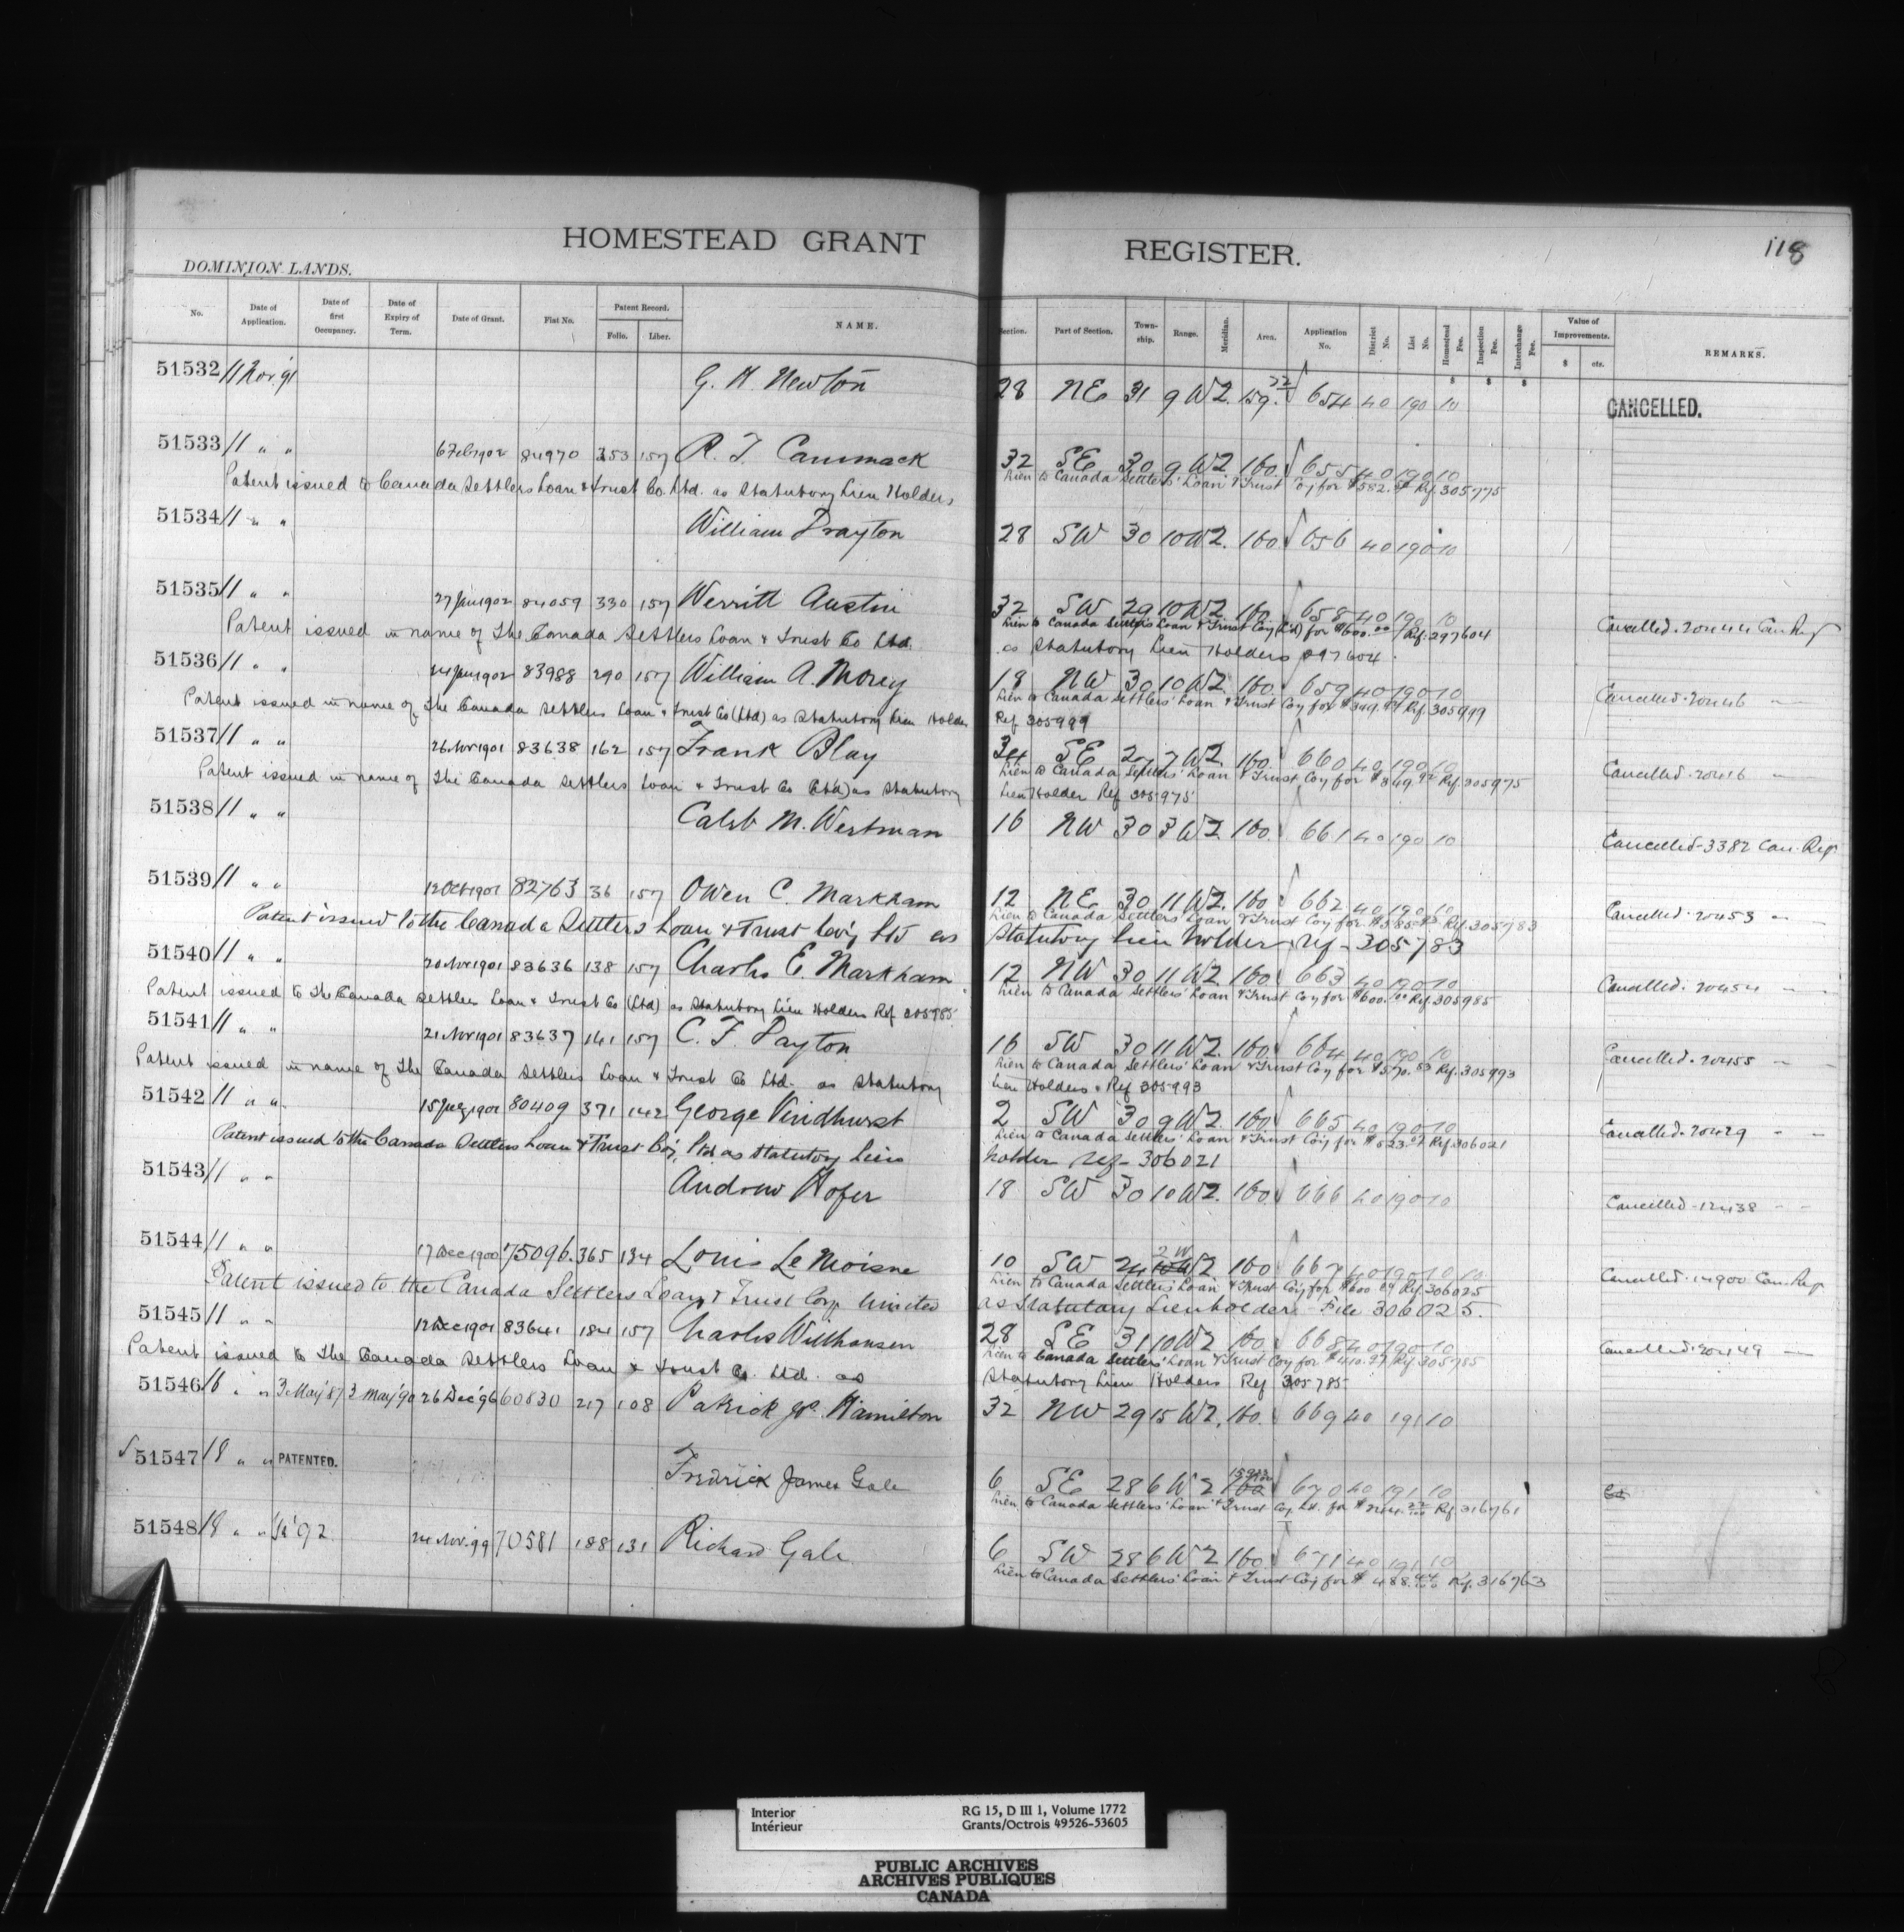 HOMESTEAD GRANT REGISTER. 118
DOMINION LANDS.
No. Date of Application. Date of first Occupancy. Date of Expiry of Term. Date of Grant. Fiat No. Patent Record. Folio. Liber. NAME. Section. Part of Section. Township. Range. Meridian. Area. Application No. District No. List No. Homestead Fee. Inspection Fee. Interchange Fee. Value of Improvements. $ cts. REMARKS.
51532 11 Nov. '91 G. H. Newton 28 NE 31 9 W2. 159. 654 40 190 10 CANCELLED.
51533 11 " " 6 Feb 1902 84970 353 157 R. T. Cammack 32 SE 30 9 W2 160 655 40 190 10
Patent issued to Canada Settlers Loan & Trust Co. Ltd. as Statutory Lien Holders Lien to Canada Settlers' Loan & Trust Coy for $582. Ref. 305775
51534 11 " " William Drayton 28 SW 30 10 W2. 160. 656 40 190 10
51535 11 " " 27 Jan 1902 84059 330 157 Werritt Austin 32 SW 29 10 W2 160. 658 40 190 10
Patent issued in name of The Canada Settlers Loan & Trust Co Ltd. Lien to Canada Settlers Loan & Trust Coy (Ltd) for $600.00 Ref. 297604 Cancelled. 20444 Can Ref
as Statutory Lien Holders 297604.
51536 11 " " 24 Jan 1902 83988 290 157 William A. Morey 18 NW 30 10 W2. 160. 659 40 190 10
Patent issued in name of The Canada Settlers Loan & Trust Co (Ltd) as Statutory Lien Holder Lien to Canada Settlers' Loan & Trust Coy for $349. Ref. 305999 Cancelled. 20446 "
Ref 305999
51537 11 " " 26 Nov 1901 83638 162 157 Frank Blay 34 SE 27 7 W2. 160. 660 40 190 10
Patent issued in name of The Canada Settlers Loan & Trust Co (Ltd) as Statutory Lien to Canada Settlers' Loan & Trust Coy for $ Ref. 305975 Cancelled. 20416 "
Lien Holder Ref 305975
51538 11 " " Caleb M. Westman 16 NW 30 3 W2. 160. 661 40 190 10 Cancelled. 3382 Can. Ref.
51539 11 " " 12 Oct 1901 82763 36 157 Owen C. Markham 12 NE 30 11 W2. 160 662 40 190 10
Patent issued to the Canada Settlers Loan & Trust Co'y Ltd as Lien to Canada Settlers' Loan & Trust Coy for $585. Ref. 305783 Cancelled. 20453 " "
Statutory Lien holder, Ref - 305783
51540 11 " " 20 Nov 1901 83636 138 157 Charles E. Markham 12 NW 30 11 W2 160 663 40 190 10
Patent issued to The Canada Settlers Loan & Trust Co (Ltd) as Statutory Lien Holders Ref 305985 Lien to Canada Settlers' Loan & Trust Coy for $600.00 Ref. 305985 Cancelled. 20454 "
51541 11 " " 21 Nov 1901 83637 141 157 C. F. Dayton 16 SW 30 11 W2. 160. 664 40 190 10
Patent issued in name of The Canada Settlers Loan & Trust Co Ltd. as Statutory Lien to Canada Settlers' Loan & Trust Coy for $570. Ref. 305993 Cancelled. 20455 "
Lien Holders. Ref 305993
51542 11 " " 15 July 1901 80409 371 142 George Vindhurst 2 SW 30 9 W2. 160. 665 40 190 10
Patent issued to the Canada Settlers Loan & Trust Co'y, Ltd as Statutory Lien Lien to Canada Settlers' Loan & Trust Coy for $523. Ref. 306021 Cancelled. 20429 " "
holder Ref - 306021
51543 11 " " Andrew Hofer 18 SW 30 10 W2. 160. 666 40 190 10 Cancelled. 12438 " "
51544 11 " " 17 Dec 1900 75096. 365 134 Louis Le Moisne 10 SW 24 2 W2 160 667 40 190 10
Patent issued to the Canada Settlers Loan & Trust Corp. Limited Lien to Canada Settlers Loan & Trust Coy for $600 Ref. 306025 Cancelled. 14900 Can. Ref
as Statutory Lienholder - File 306025.
51545 11 " " 12 Dec 1901 83641 184 157 Charles Wilthausen 28 SE 31 10 W2 160. 668 40 190 10
Patent issued to The Canada Settlers Loan & Trust Co. Ltd. as Lien to Canada Settlers' Loan & Trust Coy for $410. Ref. 305785 Cancelled. 20449 "
Statutory Lien Holders Ref 305785
51546 16 " " 3 May '87 3 May '90 26 Dec '96 60830 217 108 Patrick Jos. Hamilton 32 NW 29 15 W2. 160. 669 40 191 10
51547 18 " " PATENTED. Fredrick James Gale 6 SE 28 6 W2 160 670 40 191 10
Lien to Canada Settlers' Loan & Trust Coy Ld. for $ Ref. 316761
51548 18 " " '92 24 Nov. 99 70581 188 131 Richard Gale 6 SW 28 6 W2 160 671 40 191 10
Lien to Canada Settlers' Loan & Trust Coy for $488. Ref. 316763
Interior RG 15, D III 1, Volume 1772
Intérieur Grants/Octrois 49526-53605
PUBLIC ARCHIVES
ARCHIVES PUBLIQUES
CANADA